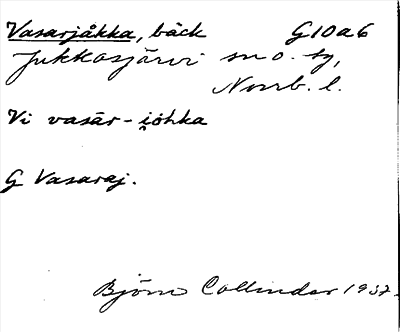 Vasarjåkka, bäck G10a6
Jukkasjärvi sn o. tg,
Norrb. l.
Vi vasār-i̭ohka
G Vasaraj.
Björn Collinder 1937.